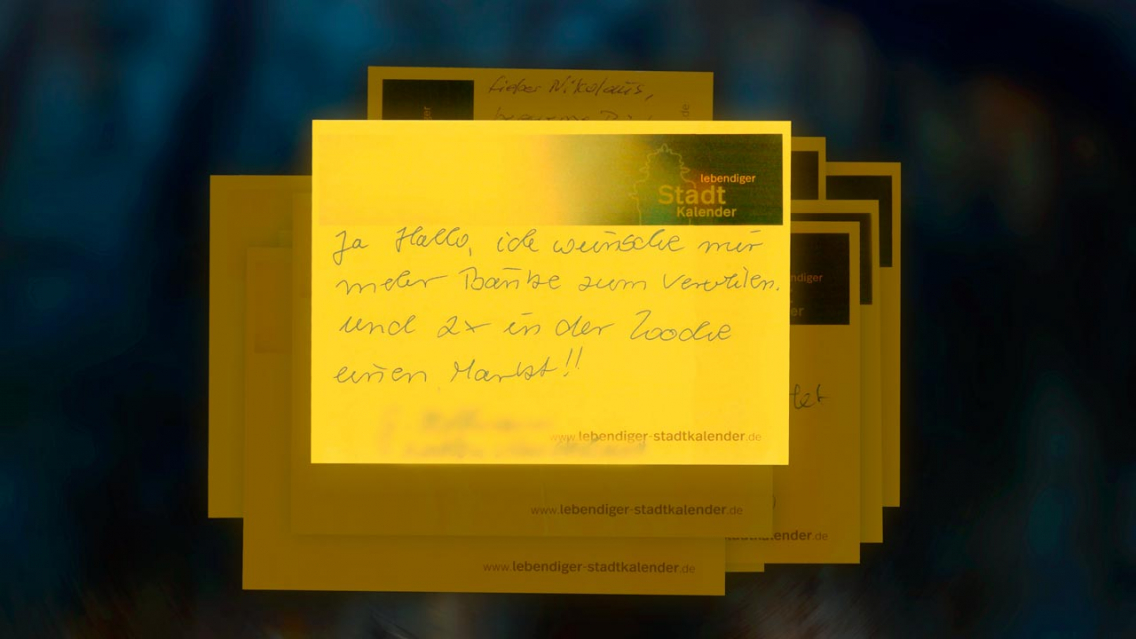 Lieber Nikolaus,
lebendiger
Stadt
Kalender
Ja Hallo, ich wünsche mir
mehr Bänke zum Verweilen.
und 2x in der Woche
einen Markt!!
www.lebendiger-stadtkalender.de
ndiger
er
tet
www.lebendiger-stadtkalender.de
stadtkalender.de
www.lebendiger-stadtkalender.de